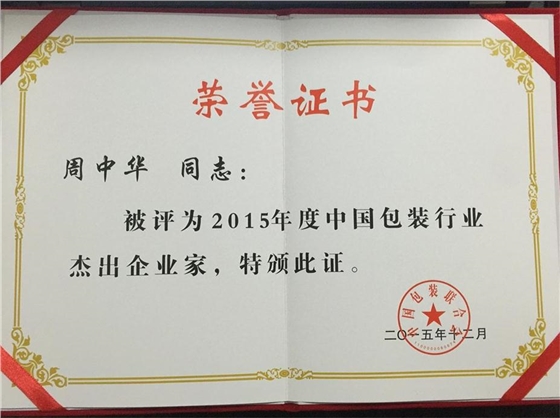 荣誉证书
周中华 同志：
被评为2015年度中国包装行业
杰出企业家，特颁此证。
中国包装联合会
二〇一五年十二月